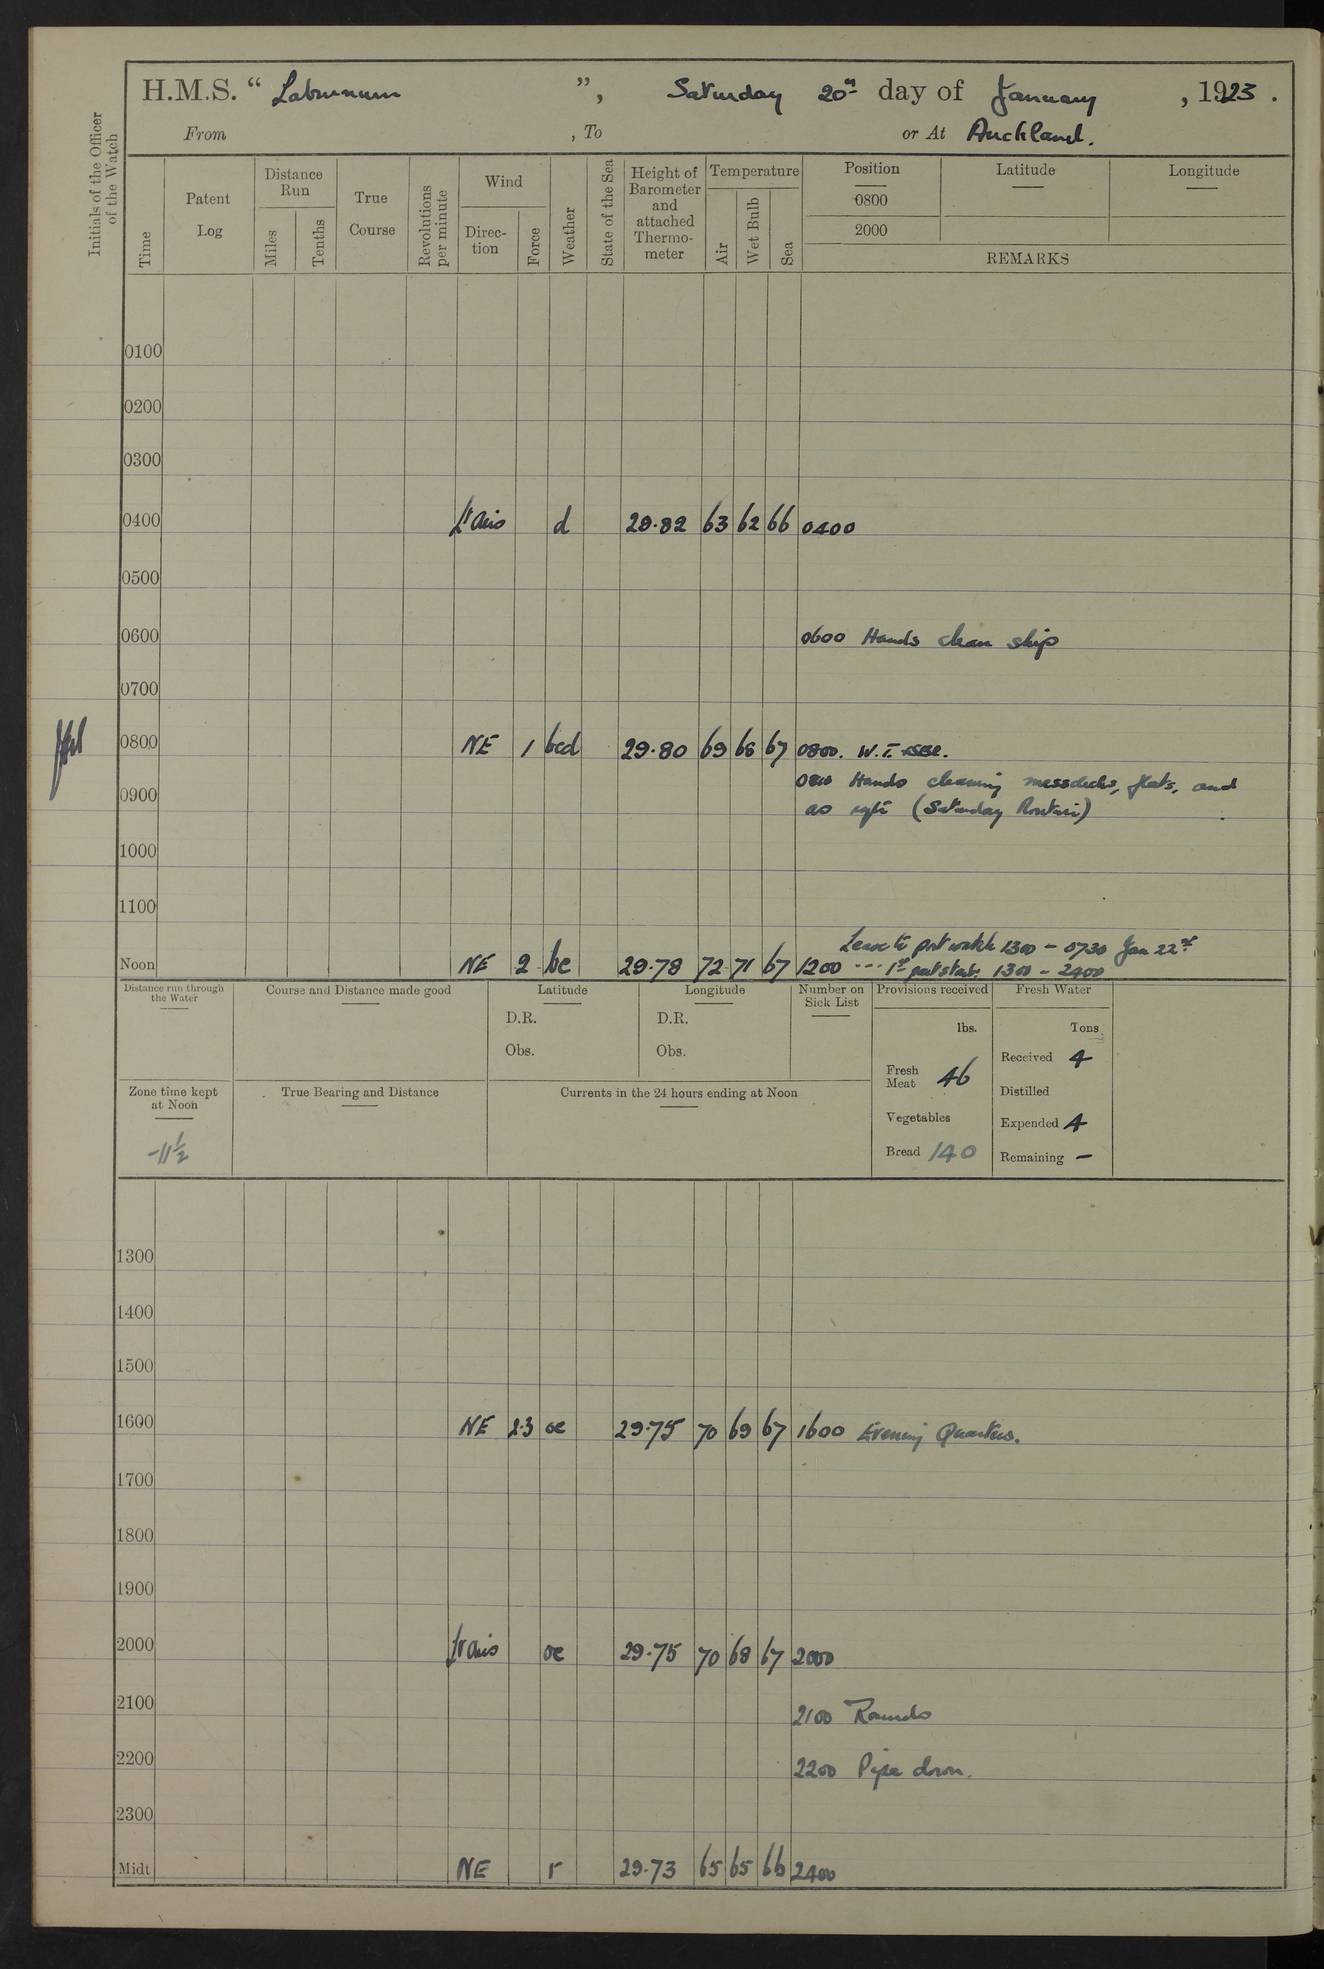 H.M.S. “ Laburnum ”, Saturday 20th day of January , 1923 .
From , To or At Auckland.
Initials of the Officer of the Watch
Time
Patent Log
Distance Run
Miles
Tenths
True Course
Revolutions per minute
Wind
Direc-tion
Force
Weather
State of the Sea
Height of Barometer and attached Thermo-meter
Temperature
Air
Wet Bulb
Sea
Position
0800
2000
Latitude
Longitude
REMARKS
0100
0200
0300
0400 Lt airs d 29.82 63 62 66 0400
0500
0600 0600 Hands clean ship
0700
0800 NE 1 bcd 29.80 69 68 67 0800. W.T.
Hands cleaning messdecks, flats, and
0900 as reqte (Saturday Routine)
1000
1100
Leave to port watch 1300 - 0730 Jan 22nd
Noon NE 2 bc 29.78 72 71 67 1200 --- 1st part stab. 1300 - 2400
Distance run through the Water
Course and Distance made good
Latitude
D.R.
Obs.
Longitude
D.R.
Obs.
Number on Sick List
Provisions received
lbs.
Fresh Meat 46
Vegetables
Bread 140
Fresh Water
Tons
Received 4
Distilled
Expended 4
Remaining -
Zone time kept at Noon
-11½
True Bearing and Distance
Currents in the 24 hours ending at Noon
1300
1400
1500
1600 NE 2.3 oc 29.75 70 69 67 1600 Evening Quarters.
1700
1800
1900
2000 Lt airs oc 29.75 70 68 67 2000
2100 2100 Rounds
2200 2200 Pipe down.
2300
Midt NE r 29.73 65 65 66 2400